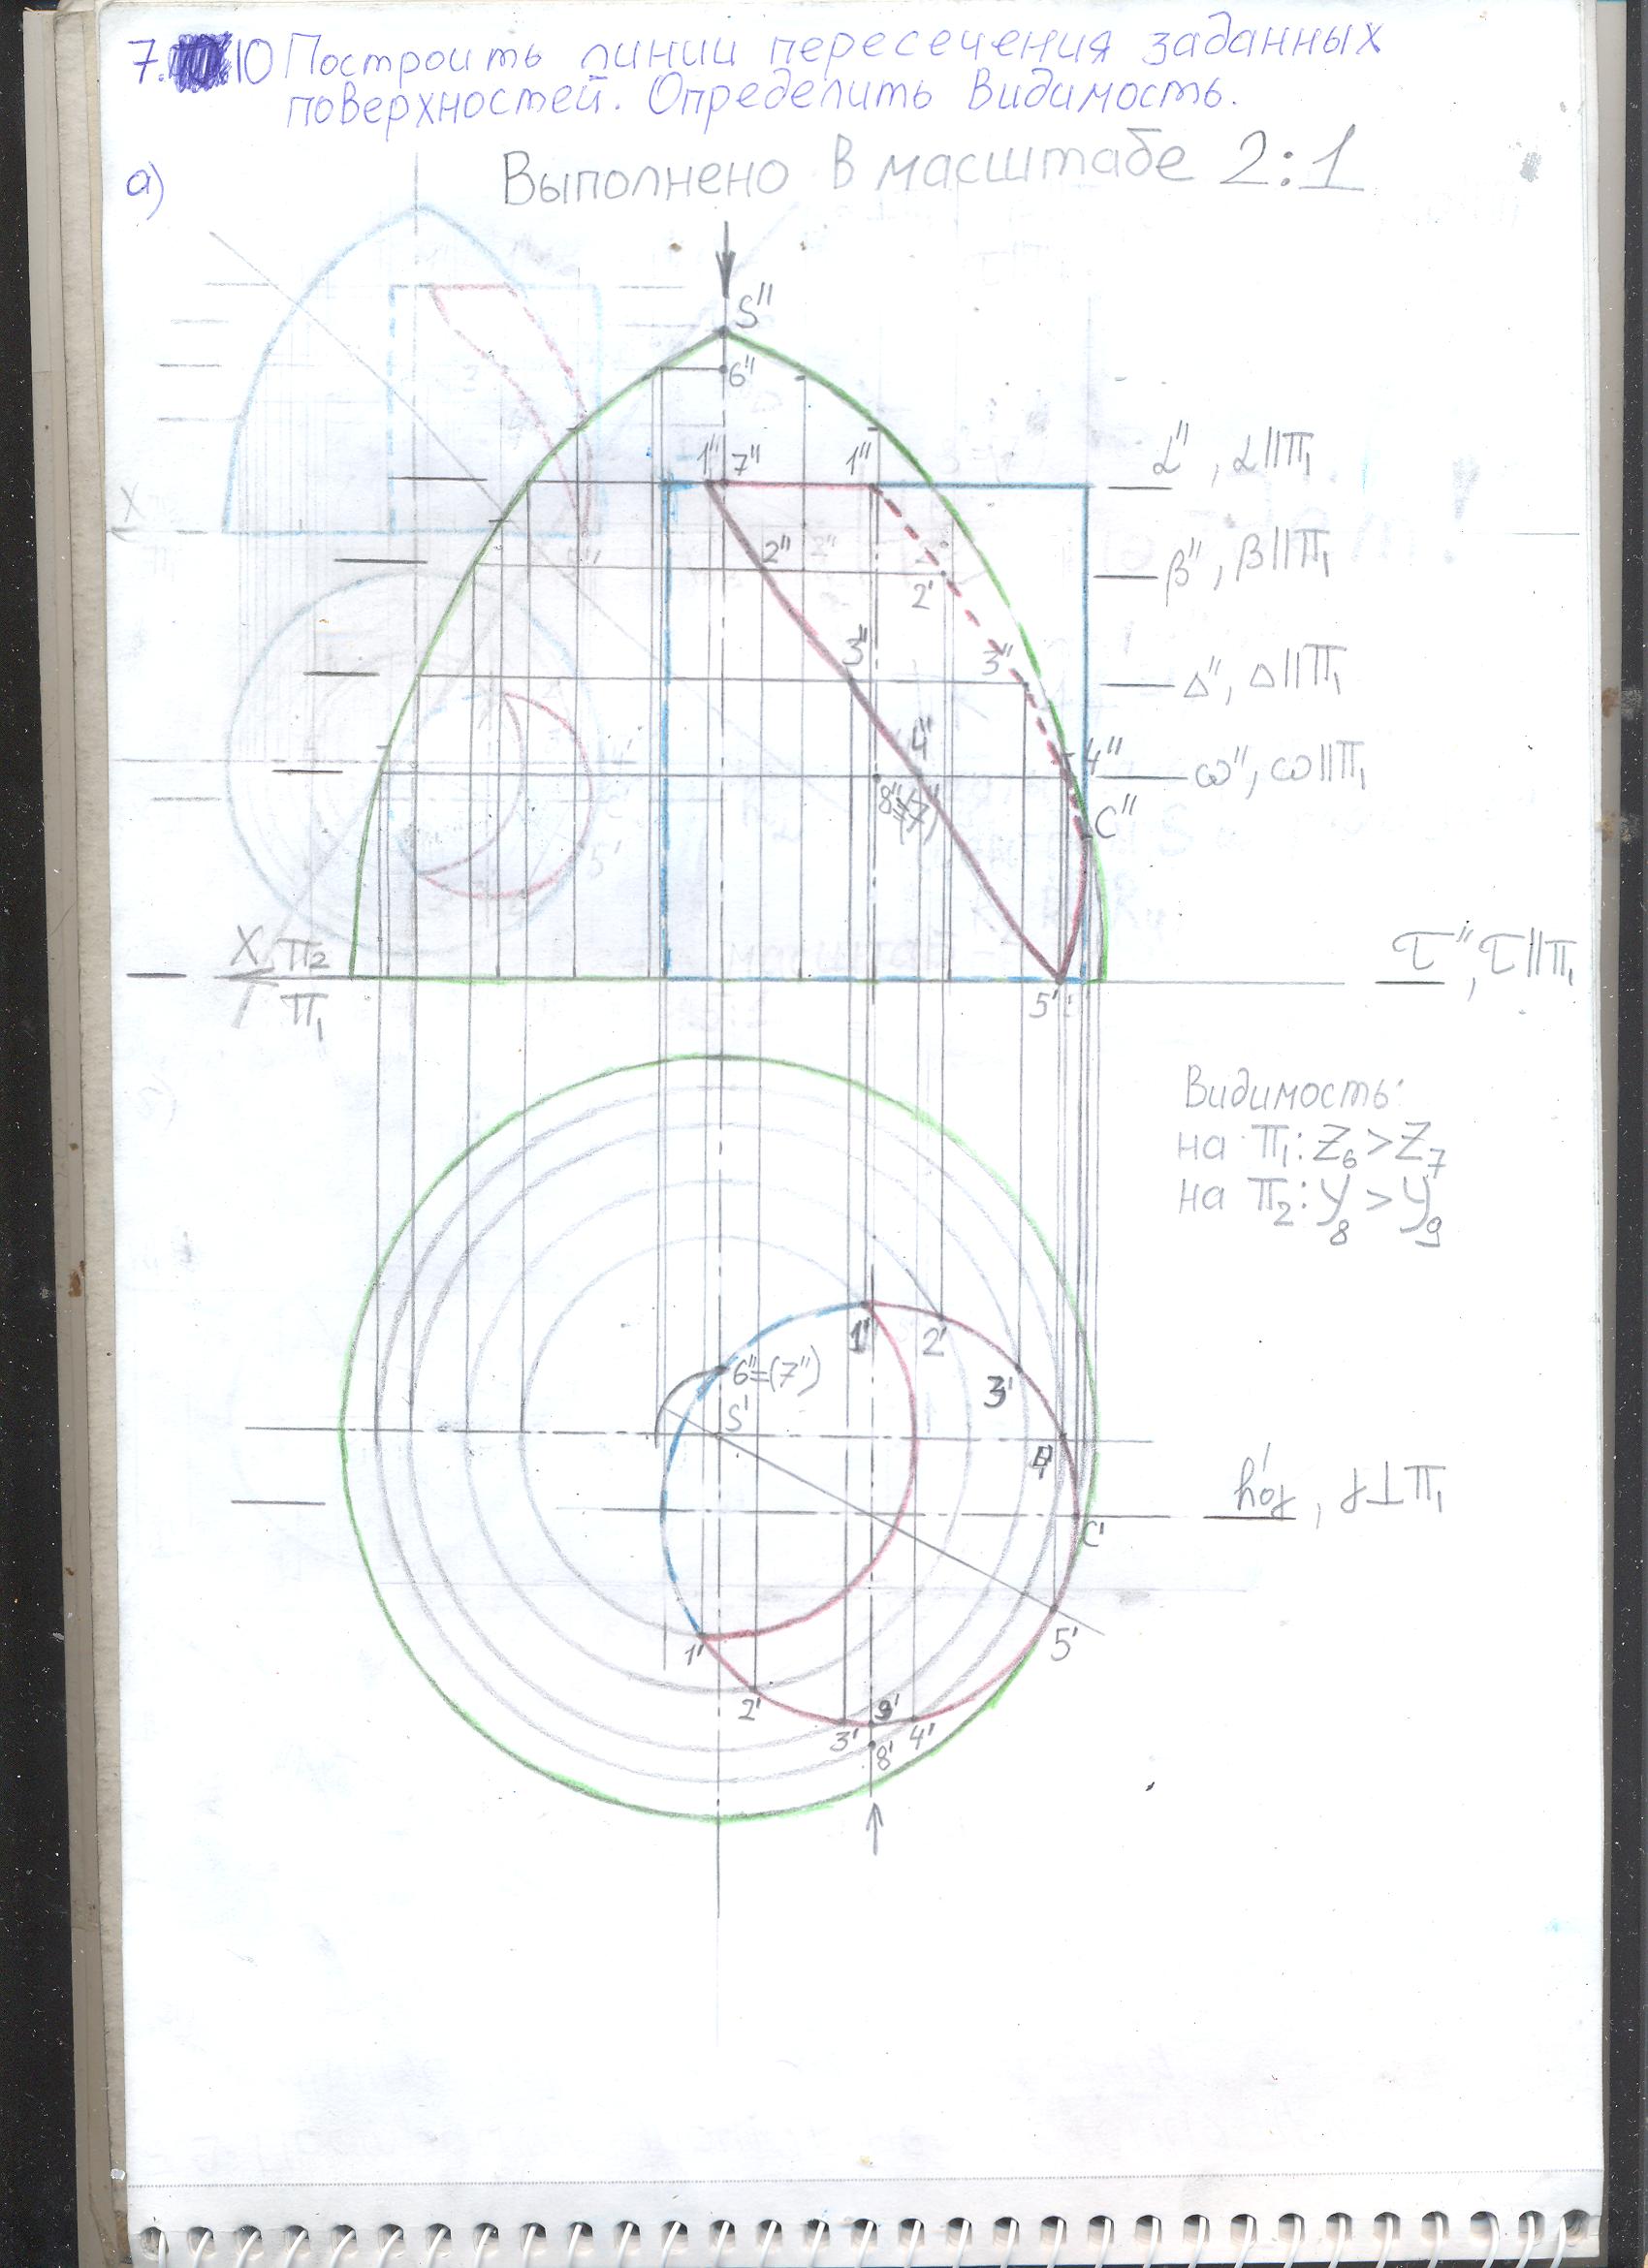 7.10 Построить линии пересечения заданных
поверхностей. Определить видимость.
а)
Выполнено в масштабе 2:1
S''
6''
1'' 7'' 1''
α'', α||П₁
2''
2'
β'', β||П₁
3'' 3''
Δ'', Δ||П₁
4'' 4''
ω'', ω||П₁
8''≡(7')
C''
X П₂
П₁
5'
τ'', τ||П₁
Видимость:
на П₁: Z₆ > Z₇
на П₂: y₈ > y₉
1' 2'
6''≡(7'')
3'
S'
C'
1'
5'
2' 3' 9' 4'
8'